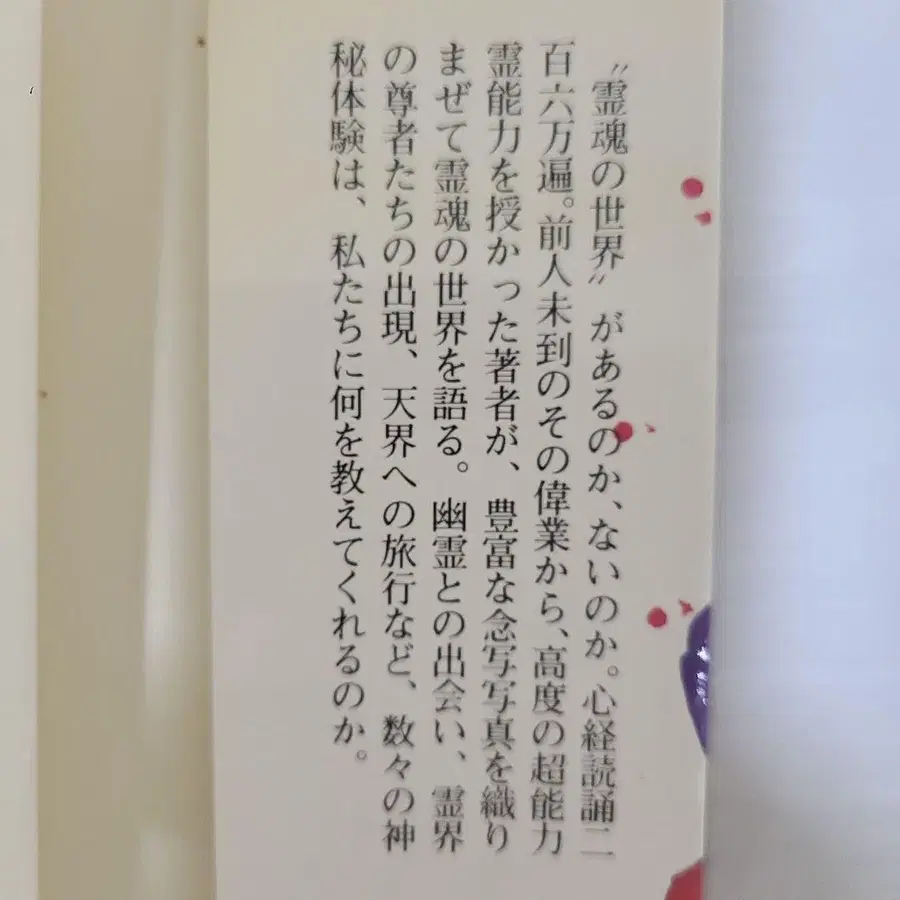 〝霊魂の世界〟があるのか、ないのか。心経読誦二
百六万遍。前人未到のその偉業から、高度の超能力
霊能力を授かった著者が、豊富な念写写真を織り
まぜて霊魂の世界を語る。幽霊との出会い、霊界
の尊者たちの出現、天界への旅行など、数々の神
秘体験は、私たちに何を教えてくれるのか。